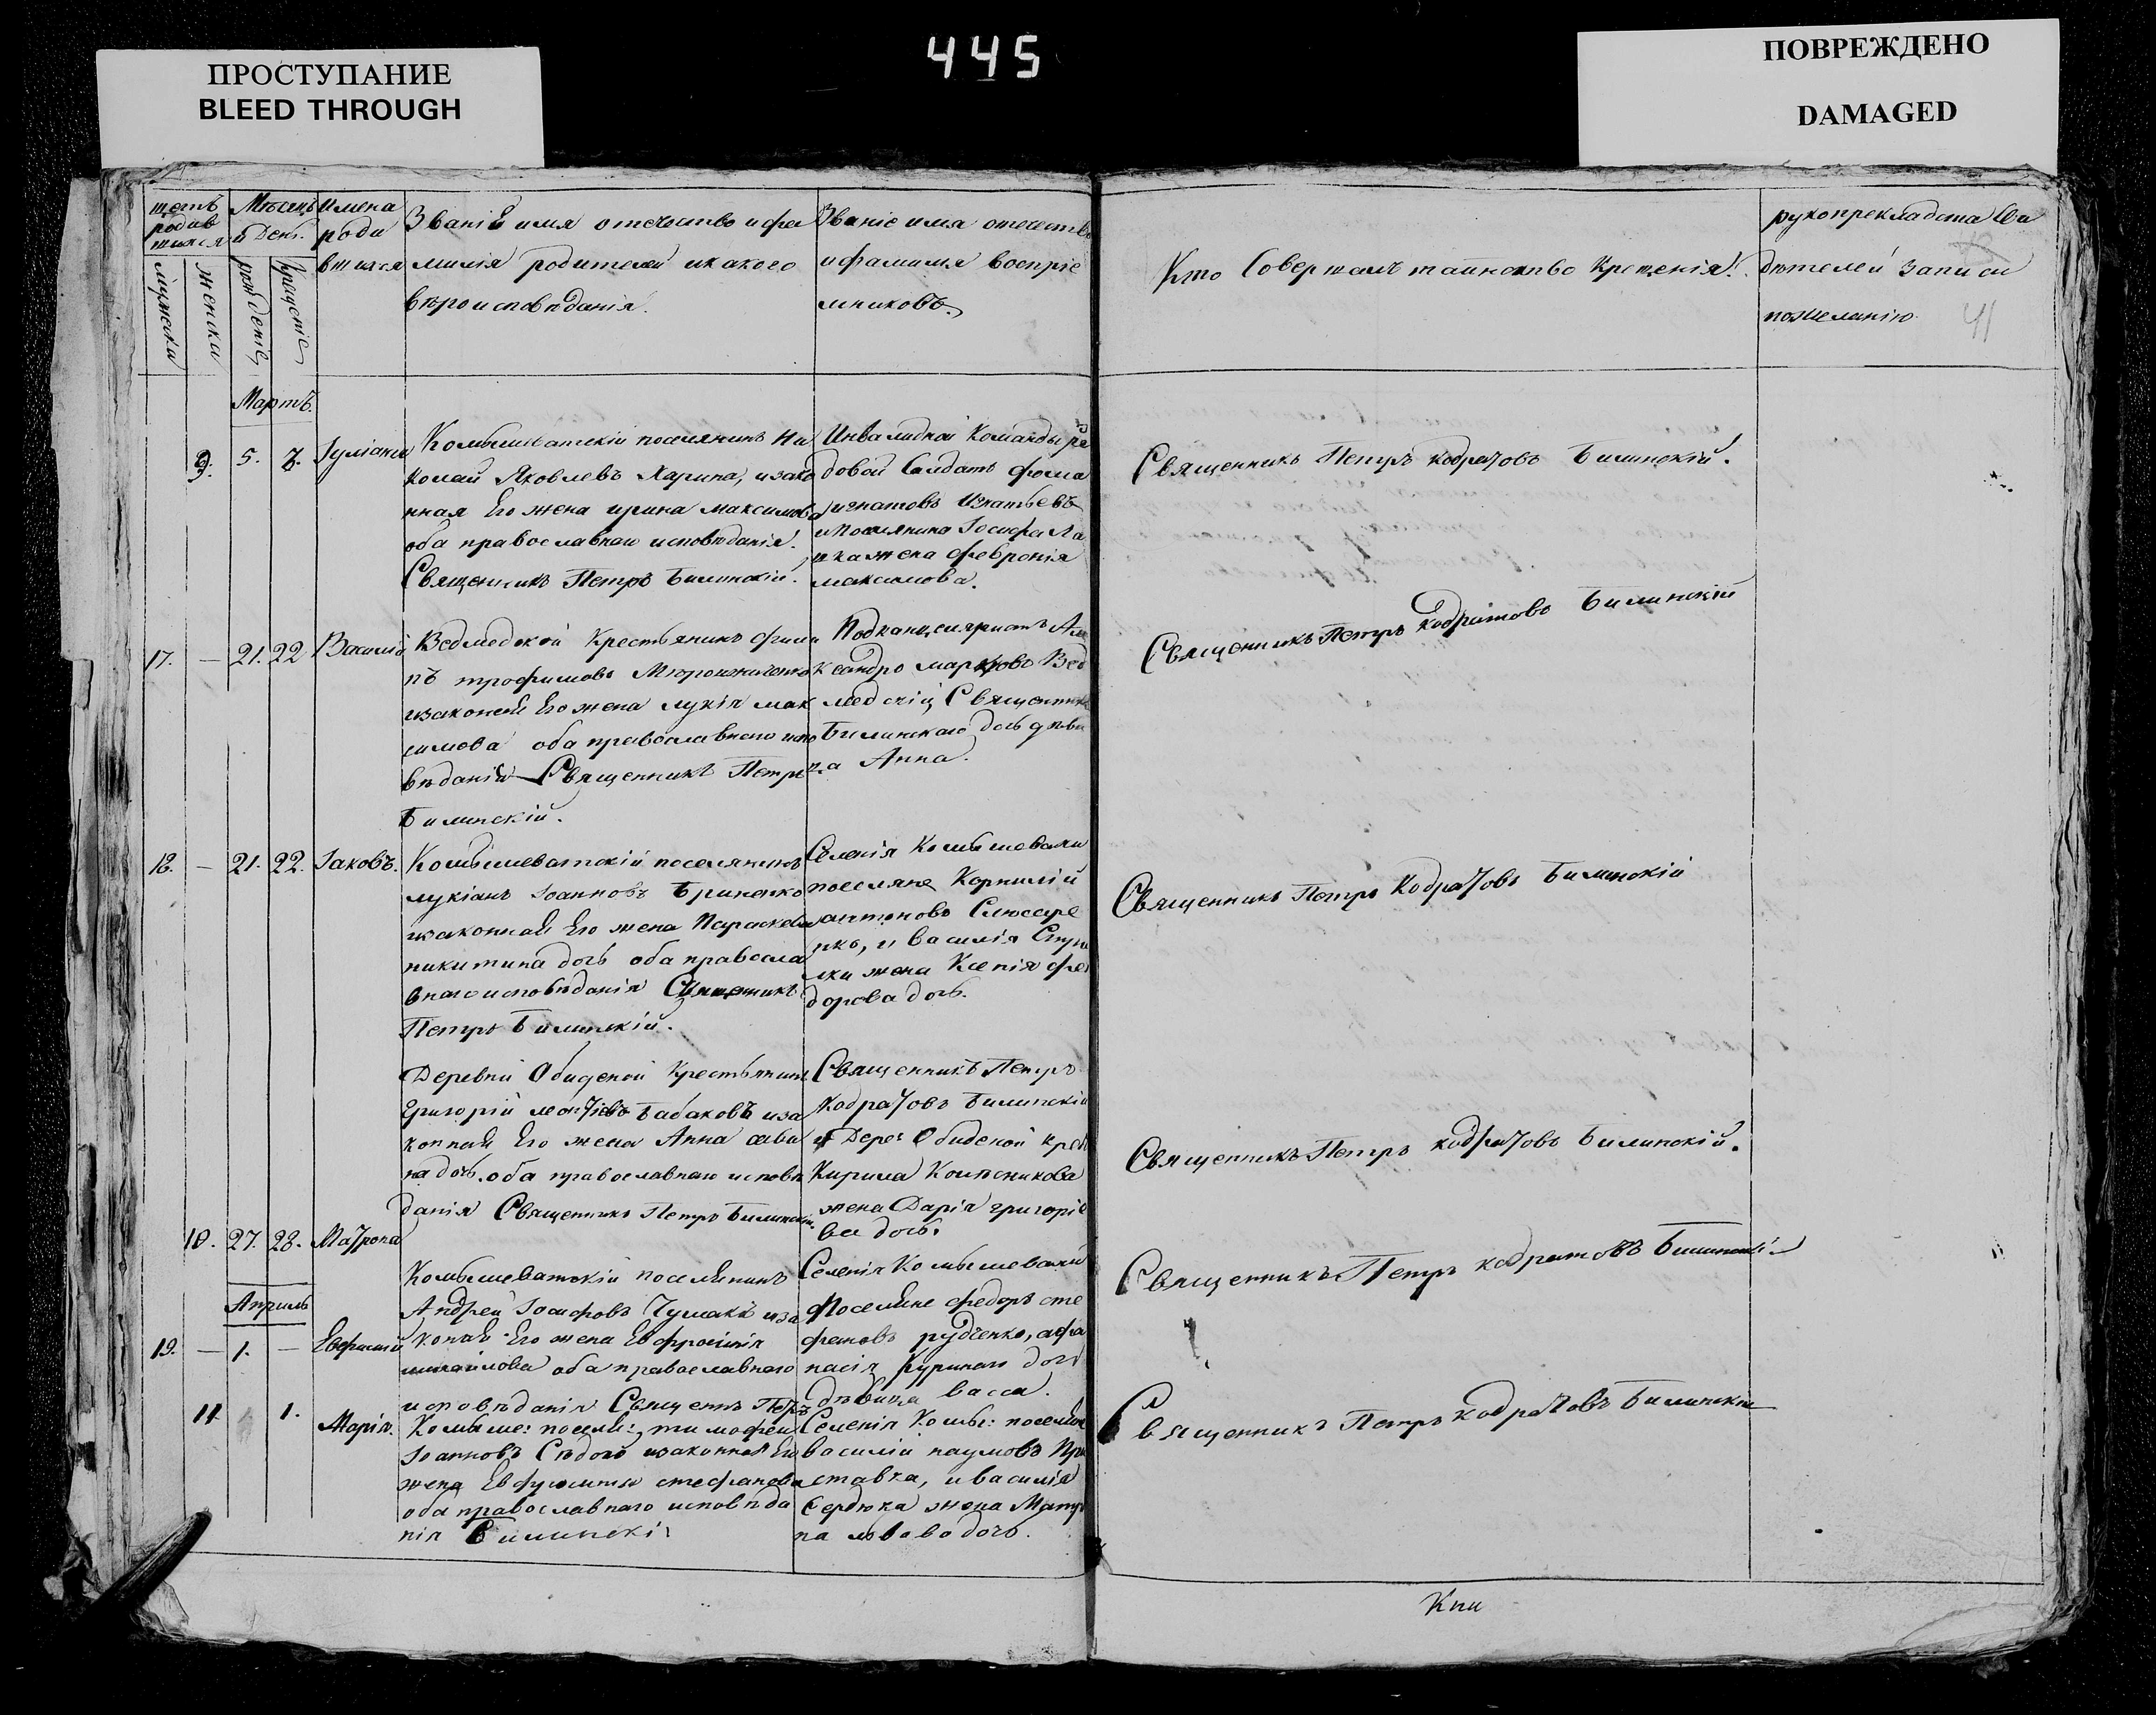 445
ПРОСТУПАНИЕ
BLEED THROUGH
ПОВРЕЖДЕНО
DAMAGED
щетъ родив шихся
мужеска
женска
Мѣсяцъ и День.
рождение
крещение
Имена роди вшихся
Званiе имя отечество и фа
милiя родителей и какого
вѣроисповѣданiя.
Званiе имя отечество
и фамилия воспрiе
мниковъ.
Кто Совершалъ таинство Крещенiя.
рукоприкладства Сви
дѣтелей записи
по желанiю
41
Мартъ.
9. 5. 7. Iулiанiя
Комышеватскiй поселянинъ Ни
колай Яковлевъ Харина, и зако
нная Его жена ирина максимова
оба православнаго исповѣданiя.
Священникъ Петръ Билинскiй.
Инвалидной Команды ря
довой Солдатъ фома
игнатовъ Игнатьевъ
и Поселянина Iосифа Ла
шка жена феврония
максимова.
Священникъ Петръ кодратовъ Билинскiй.
17. — 21. 22 Василiй
Ведмедской Крестьянинъ фили
пъ трофимовъ
и законная Его жена лукiя мак
симова оба православнаго испо
вѣданiя Священникъ Петръ
Билинскiй.
Подканцеляристъ Але
ксандръ марковъ Вед
медскiй, Священника
Билинскаго дочь дѣви
ца Анна.
Священникъ Петръ кодратовъ Билинскiй
18. — 21. 22. Iаковъ.
Комышеватскiй поселянинъ
лукiанъ Iоанновъ Гриненко
и законная Его жена Параскева
никитина дочь оба правосла
внаго исповѣданiя Священникъ
Петръ Билинскiй.
Селенiя Комышевахи
поселяне Корнилiй
антоновъ Слюсаре
нко, и василiя
жена Ксенiя фео
дорова дочь.
Священникъ Петръ Кодратовъ Билинскiй
10. 27. 28. Матрона
Деревни Обидной Крестьянинъ
Григорiй Бабаковъ и за
конная Его жена Анна савви
на дочь. оба православнаго исповѣ
данiя Священникъ Петръ Билинскiй.
Священникъ Петръ
Кодратовъ Билинскiй
и Дерев: Обидной крес
Кирила Колѣсникова
жена Дарiя григорiе
ва дочь.
Священникъ Петръ кодратовъ Билинскiй.
Апрель
19. — 1. — Евфимiй
Комышеватскiй поселянинъ
Андрей Iосифовъ Чумакъ и за
конная Его жена Евфросинiя
михайлова оба православнаго
исповѣданiя Священъ Петръ
Селенiя Комышевахи
Поселяне федоръ сте
фановъ рудченко, афа
насiя Курилаго дочь
дѣвица васса.
Священникъ Петръ кодратовъ Билинскiй
11 1. Марiя.
Комыше: посел: тимофей
Iоанновъ Сѣдого и законная Его
жена Евфросинiя стефанова
оба православнаго исповѣда
нiя Билинскi
Селенiя Комы: поселяне
василiй наумовъ При
ставка, и василiя
Сердюка жена Матро
на львова дочь.
Священникъ Петръ кодратовъ Билинскiй
Кни